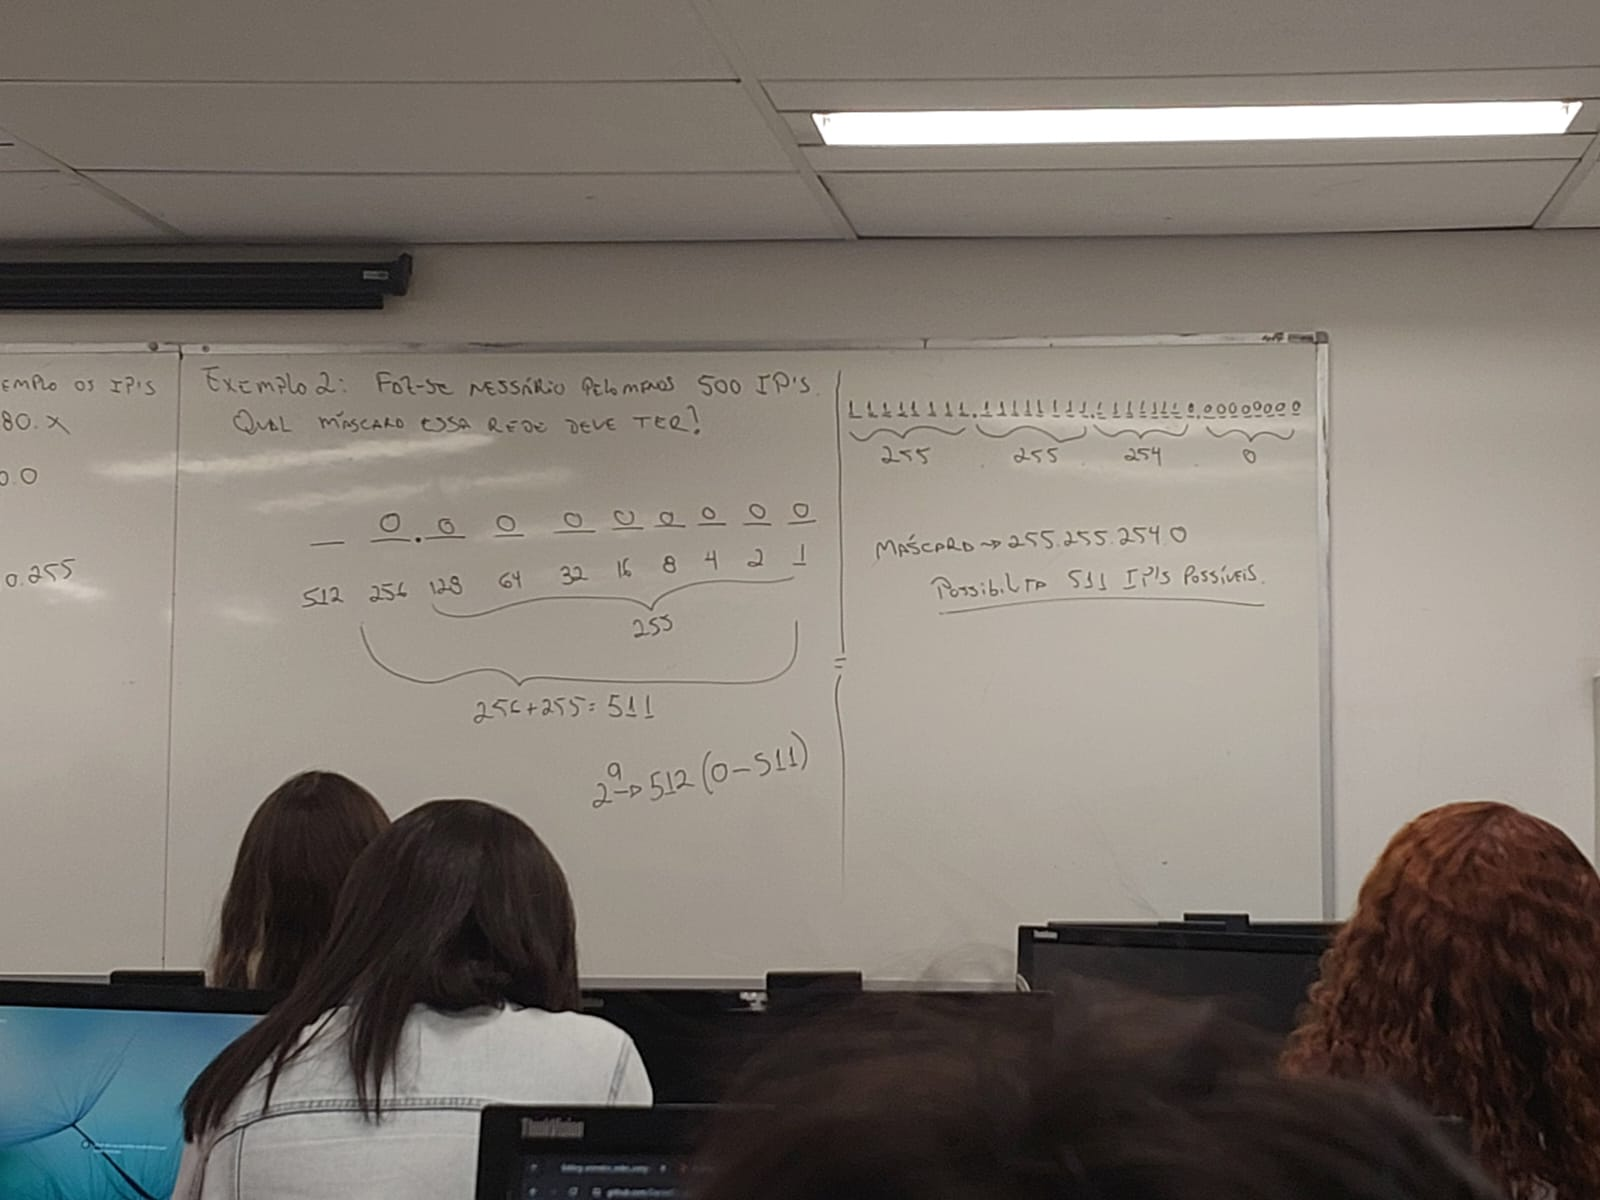 EMPLO OS IP'S
80. X
0.0
0.255
EXEMPLO 2: FAZ-SE NESSÁRIO PELO MENOS 500 IP'S.
QUAL MÁSCARA ESSA REDE DEVE TER?
_ 0.0 0 0 0 0 0 0 0
512 256 128 64 32 16 8 4 2 1
255
256+255= 511
2^9 → 512 (0-511)
11111111.11111111.11111110.00000000
255 . 255 . 254 0
MÁSCARA → 255.255.254.0
POSSIBILITA 511 IP'S POSSÍVEIS.
ThinkVision